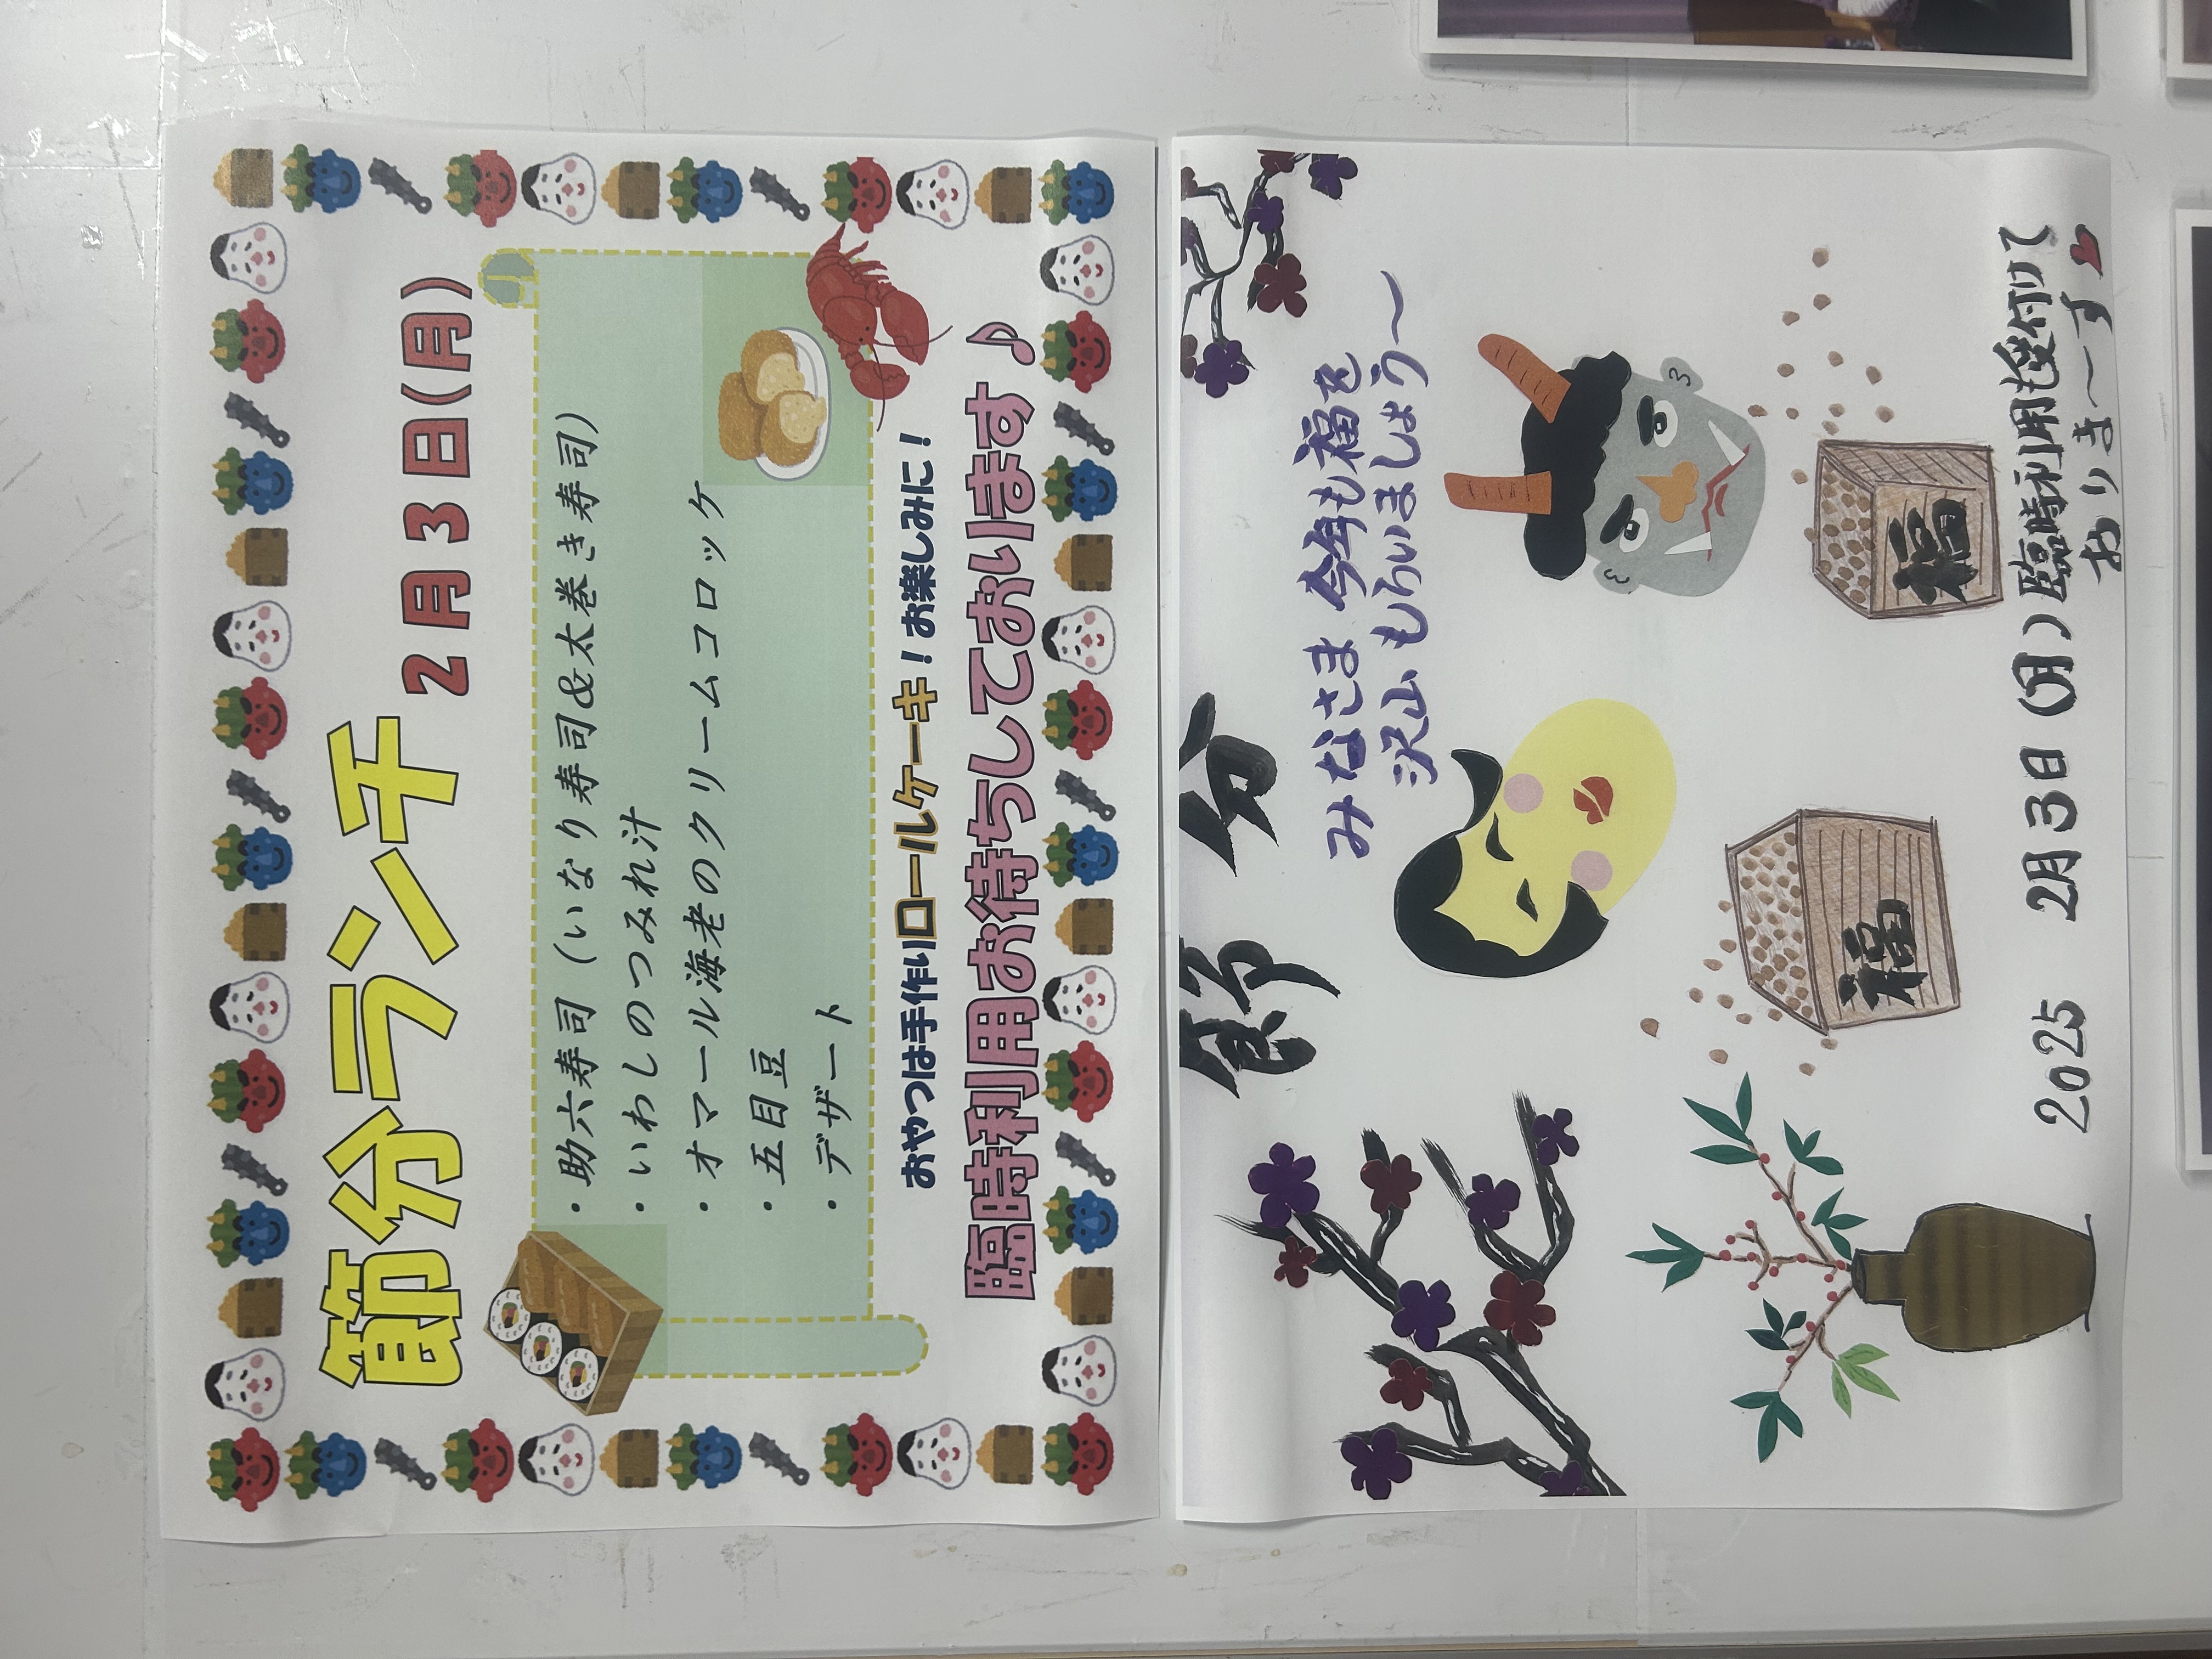 節分ランチ
2月3日(月)
・助六寿司(いなり寿司&太巻き寿司)
・いわしのつみれ汁
・オマール海老のクリームコロッケ
・五目豆
・デザート
おやつは手作りロールケーキ!お楽しみに!
臨時利用お待ちしております♪
節分
みなさま 今年も福を
沢山もらいましょう〜
福
福
2025 2月3日(月)臨時利用も受付けて
おりま〜す♥